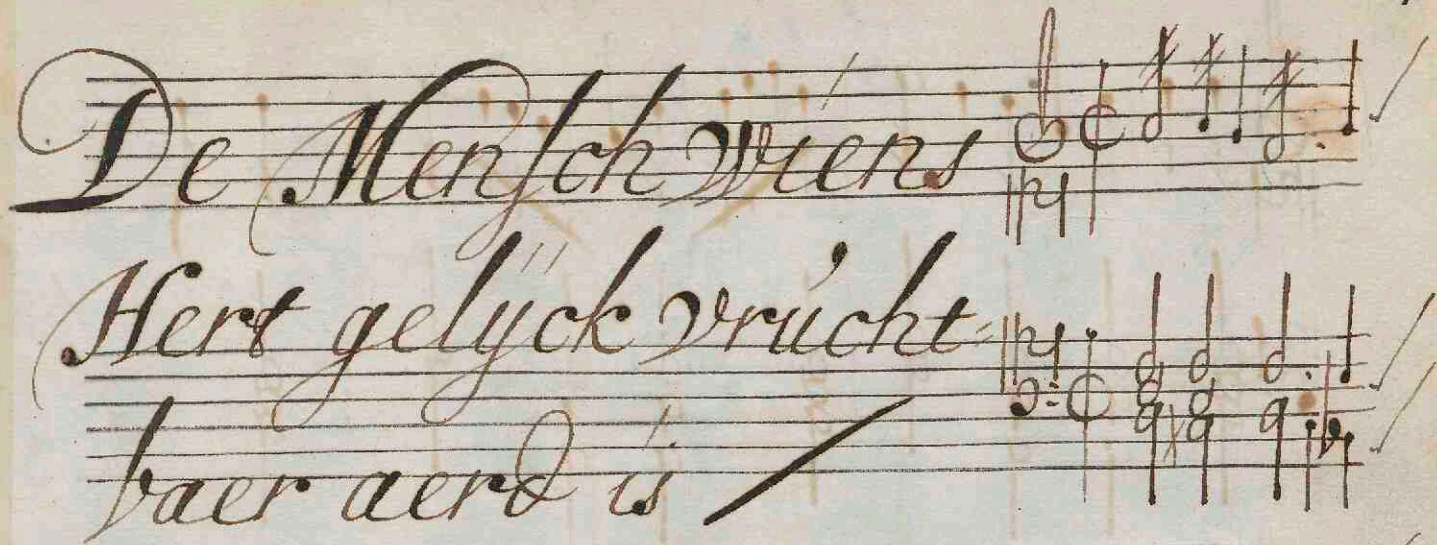 De Mensch wiens
Hert gelyck vrucht=
baer aerd is